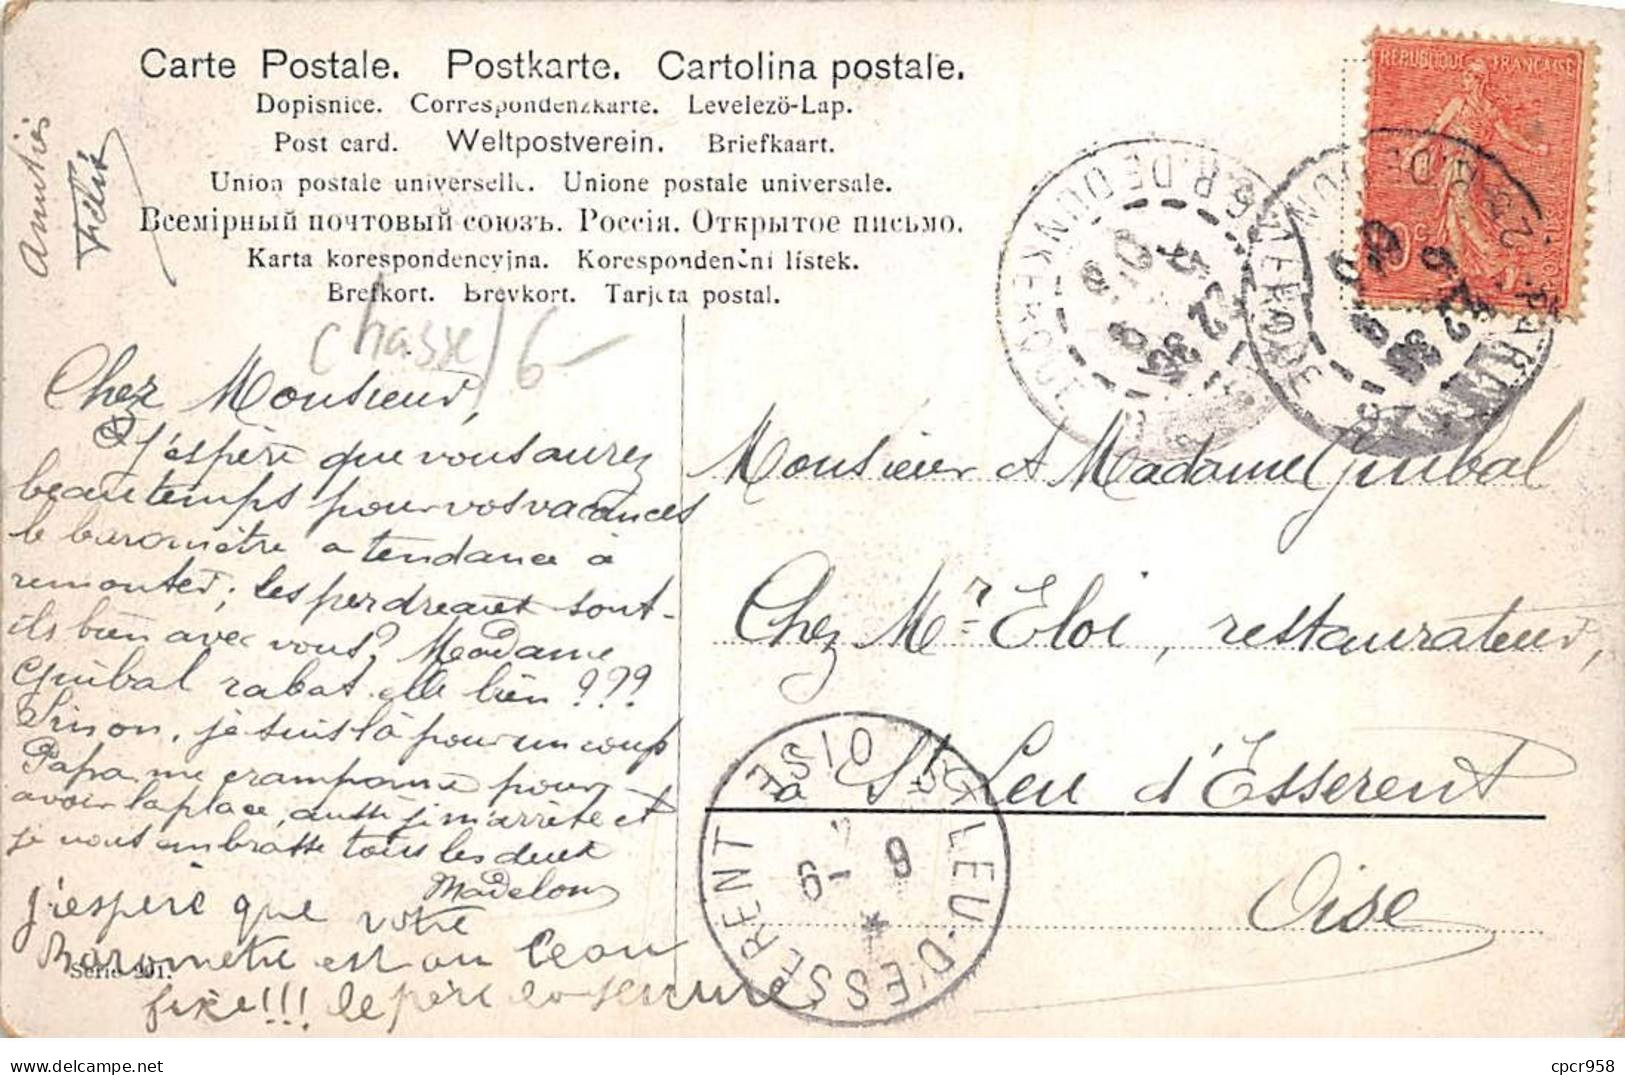 Carte Postale. Postkarte. Cartolina postale.
Dopisnice. Correspondenzkarte. Levelezö-Lap.
Post card. Weltpostverein. Briefkaart.
Union postale universelle. Unione postale universale.
Всемірный почтовый союзъ. Россія. Открытое письмо.
Karta korespondencyjna. Korespondenční lístek.
Brefkort. Brevkort. Tarjeta postal.
Amitiés
(chasse) 6-
REPUBLIQUE FRANÇAISE
Cher Monsieur,
J'espère que vous aurez
beau temps pour vos vacances
le baromètre a tendance à
remonter; les perdreaux sont-
ils bien avec vous? Madame
Guibal rabat elle bien ???
Sinon, je suis là pour un coup
Papa me cramponne pour
avoir la place, aussi je m'arrête et
je vous embrasse tous les deux
Madelon
j'espère que votre
baromètre est au beau
fixe!!! le père
Série 201.
Monsieur et Madame Guibal
Chez Mr Eloi, restaurateur,
à St Leu d'Esserent
Oise
ST LEU-D'ESSERENT OISE
6-9
PARIS 22 R. DE DUNKERQUE
cpcr958